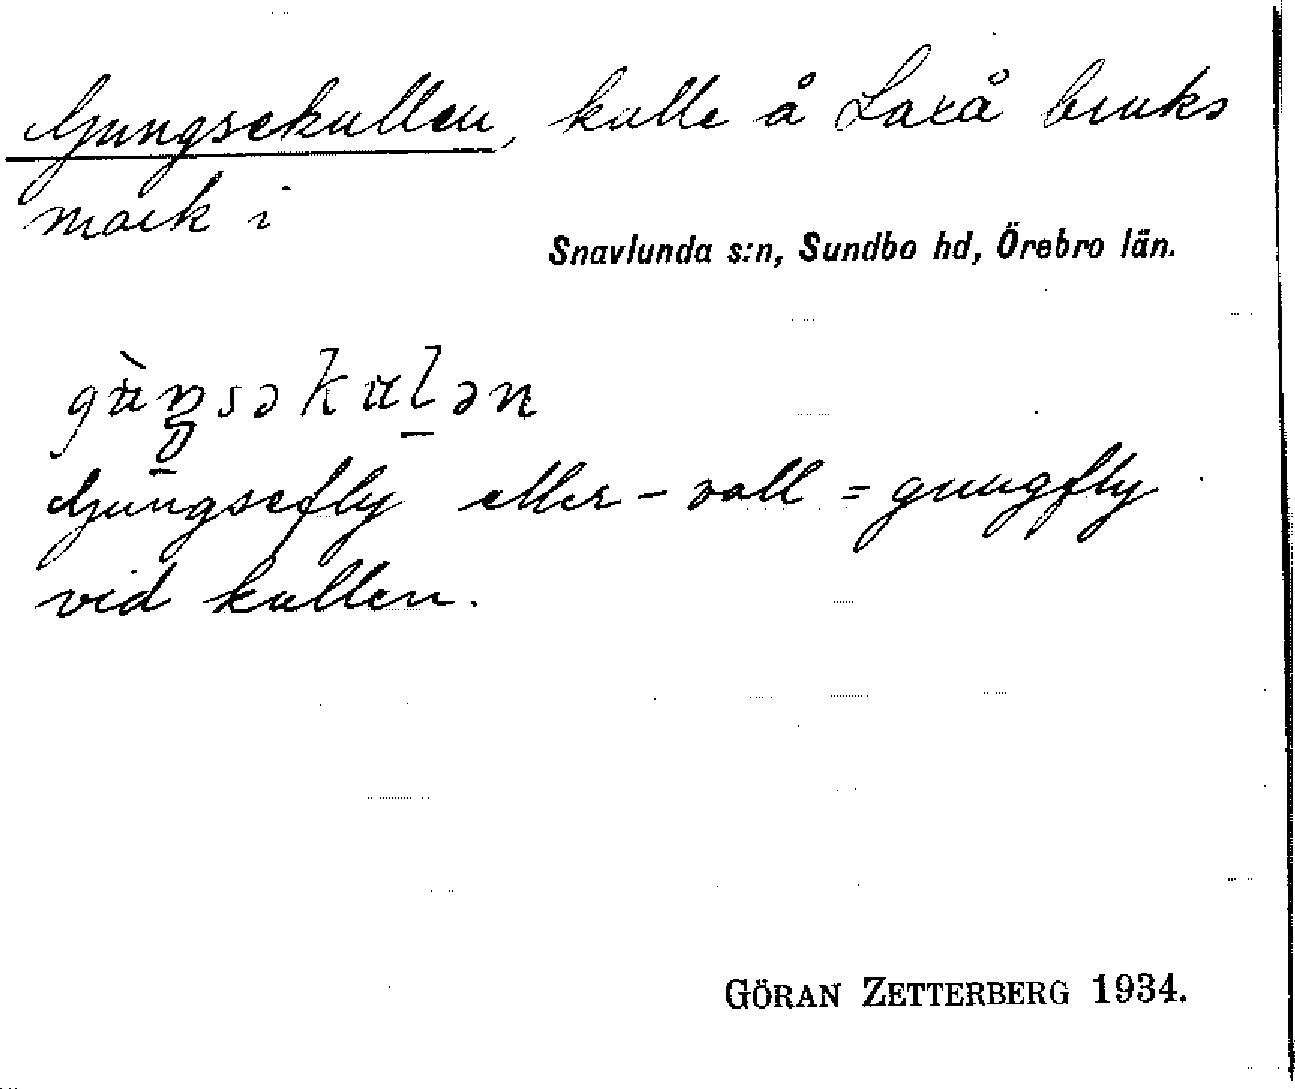 Gungsekullen, kulle å Laxå bruks
mark i
Snavlunda s:n, Sundbo hd, Örebro län.
Gungsefly eller - vall = gungfly
vid kullen.
GÖRAN ZETTERBERG 1934.